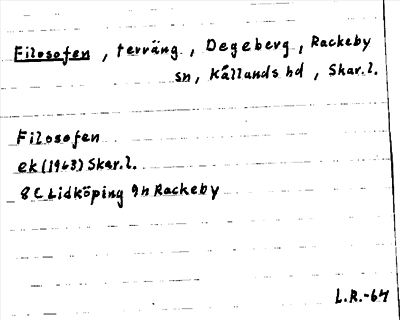 Filosofen, terräng., Degeberg, Rackeby
sn, Kållands hd, Skar.l.
Filosofen
ek (1963) Skar.l.
8C Lidköping 9h Rackeby
L.R.-64